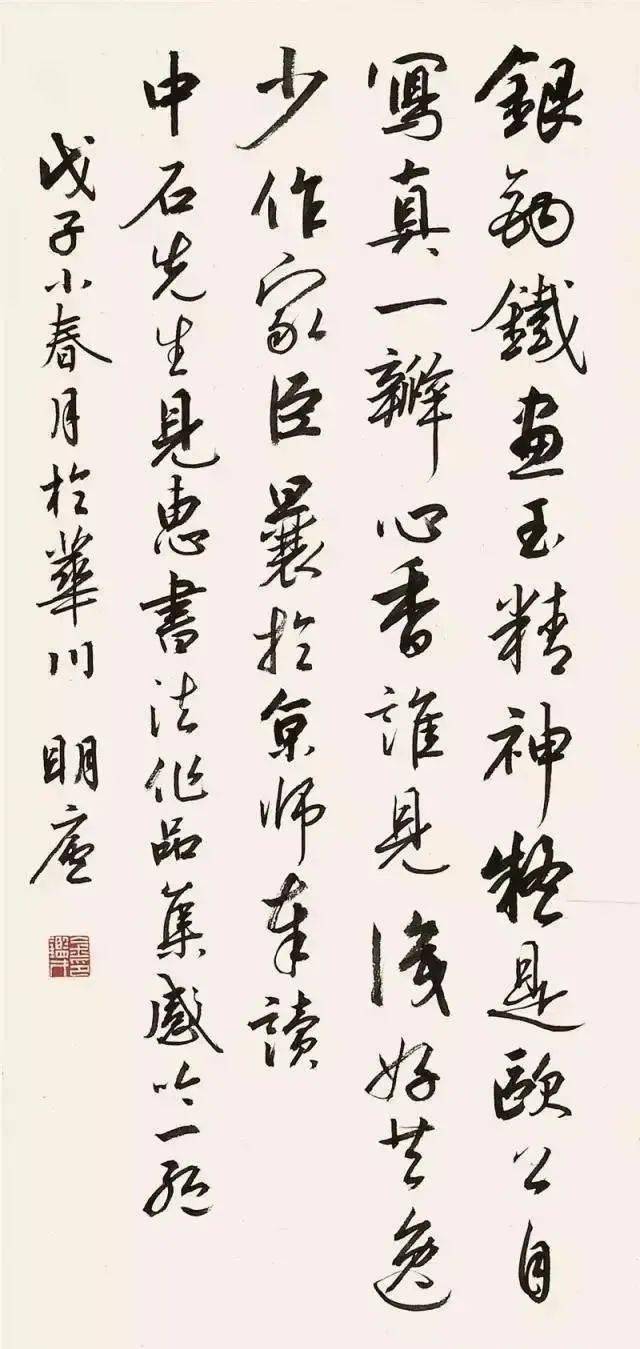 銀鉤鐵畫玉精神疑是歐公自
寫真一瓣心香誰見識好共逸
少作家臣曩於京師奉讀
中石先生見惠書法作品集感吟一絕
戊子小春月於華川 明廬
金鑑才印